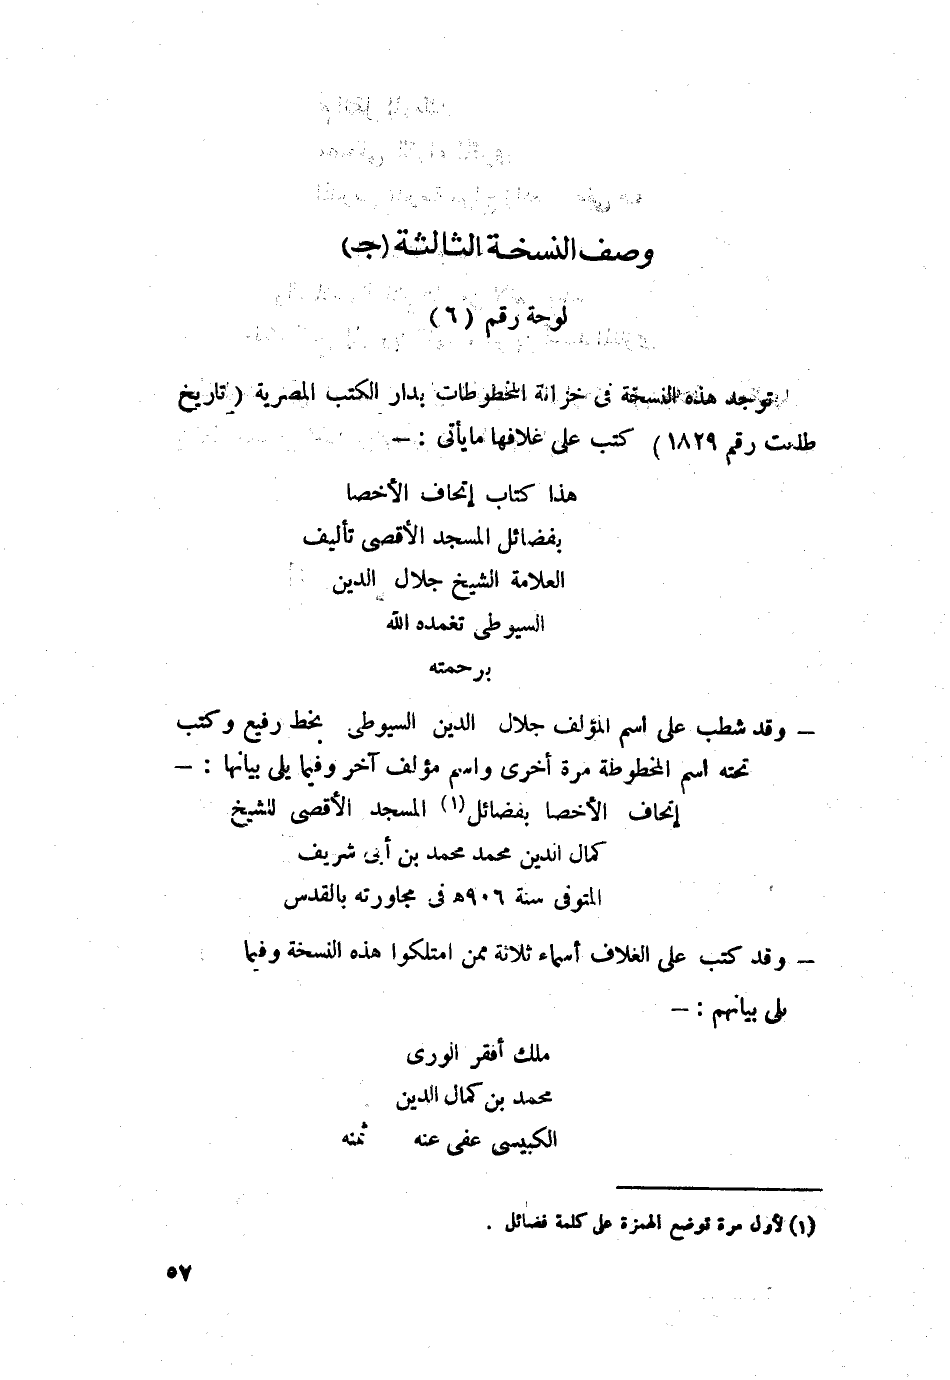 وصف النسخة الثالثة (جـ)
لوحة رقم (٦)
توجد هذه النسخة فى خزانة المخطوطات بدار الكتب المصرية (تاريخ
طلعت رقم ١٨٢٩) كتب على غلافها مايأتى : —
هذا كتاب إتحاف الأخصا
بفضائل المسجد الأقصى تأليف
العلامة الشيخ جلال الدين
السيوطى تغمده الله
برحمته
— وقد شطب على اسم المؤلف جلال الدين السيوطى بخط رفيع وكتب
تحته اسم المخطوطة مرة أخرى واسم مؤلف آخر وفيما يلى بيانها : —
إتحاف الأخصا بفضائل(١) المسجد الأقصى للشيخ
كمال الدين محمد محمد بن أبى شريف
المتوفى سنة ٩٠٦هـ فى مجاورته بالقدس
— وقد كتب على الغلاف أسماء ثلاثة ممن امتلكوا هذه النسخة وفيما
يلى بيانهم : —
ملك أفقر الورى
محمد بن كمال الدين
الكبيسى عفى عنه ثمنه
(١) لأول مرة توضع الهمزة على كلمة فضائل .
٥٧